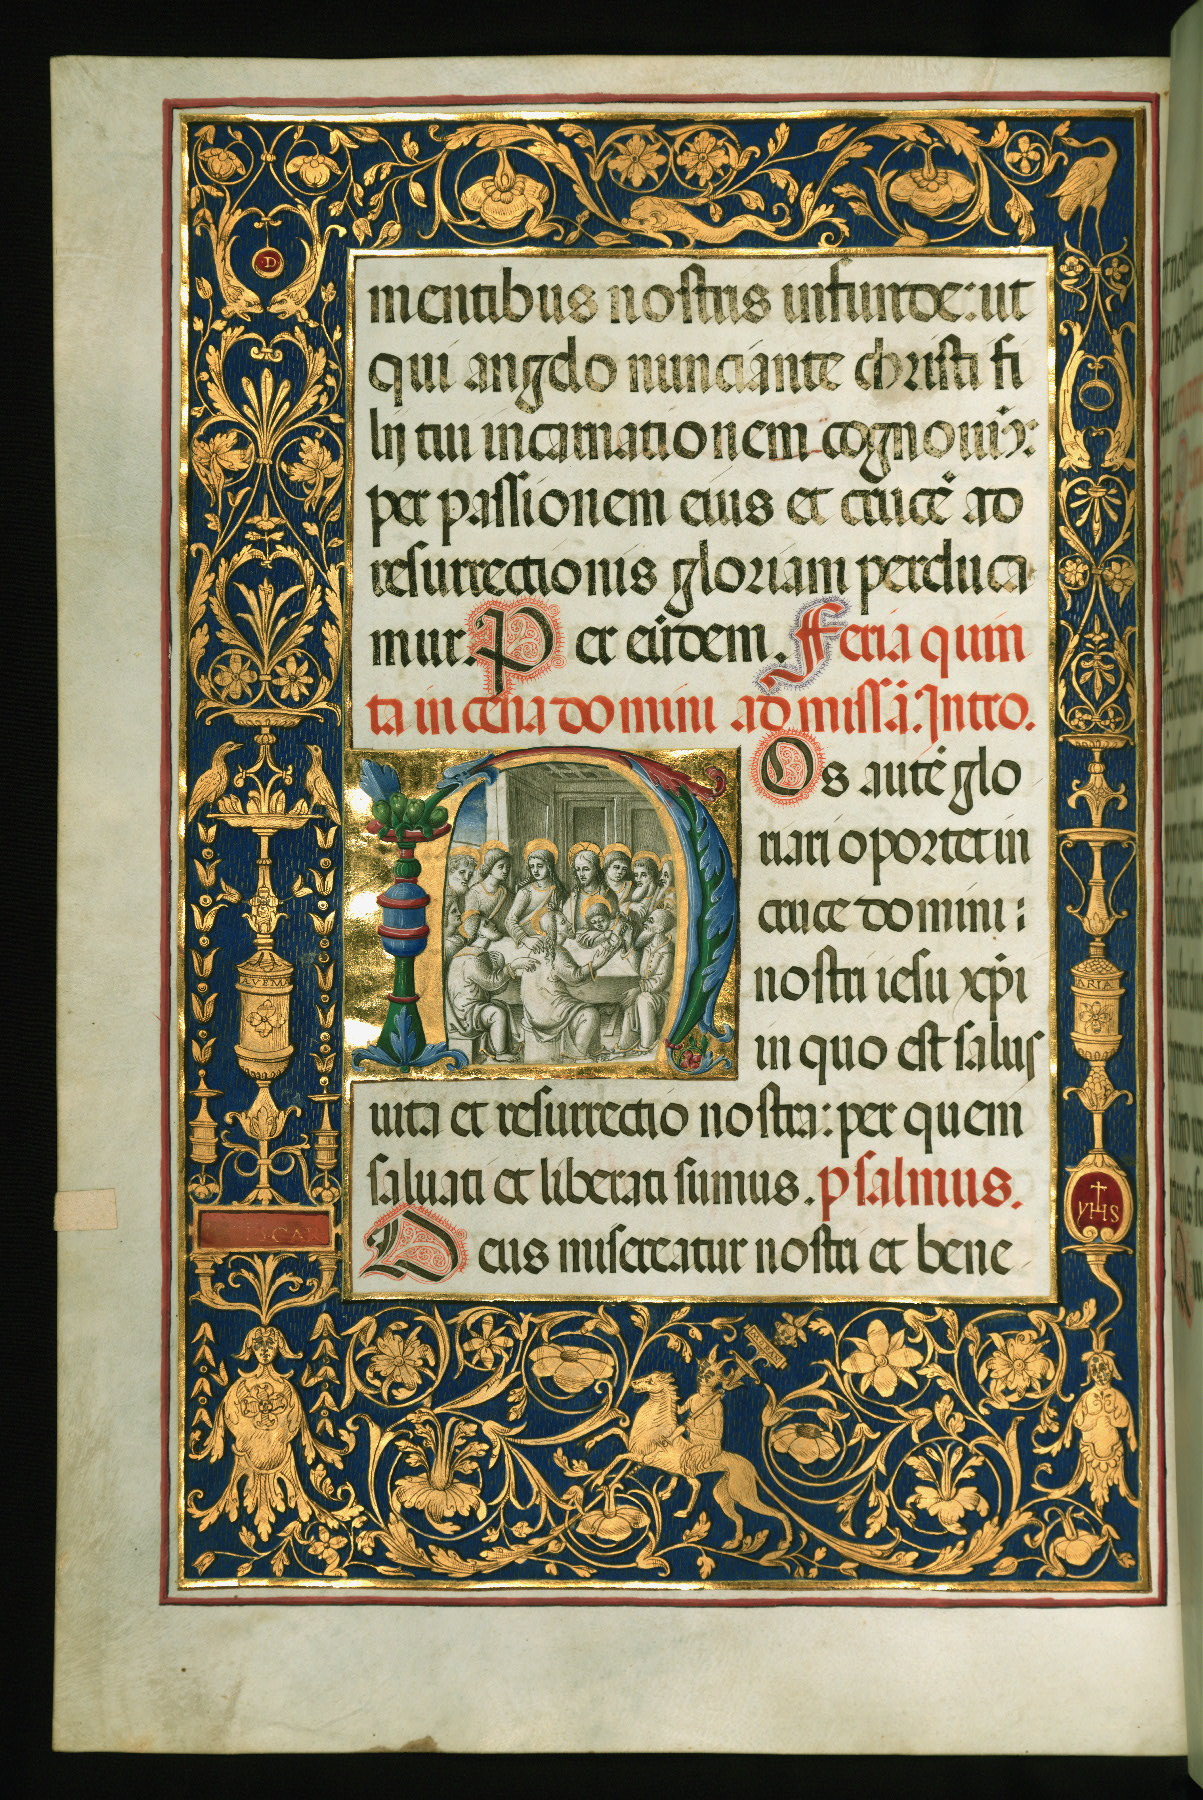 mentibus nostris infunde: ut
qui angelo nunciante christi fi
lij tui incarnationem cognouim̄:
per passionem eius et crucē ad
resurrectionis gloriam perduca
mur. Per eūdem. Feria quin
ta in cena domini ad missā. Intro.
Os autē glo
riari oportet in
cruce domini :
nostri iesu xp̄i
in quo est salus
uita et resurrectio nostra: per quem
saluati et liberati sumus. psalmus.
Deus misereatur nostri et bene
D
AVEM
ARIA
YHS